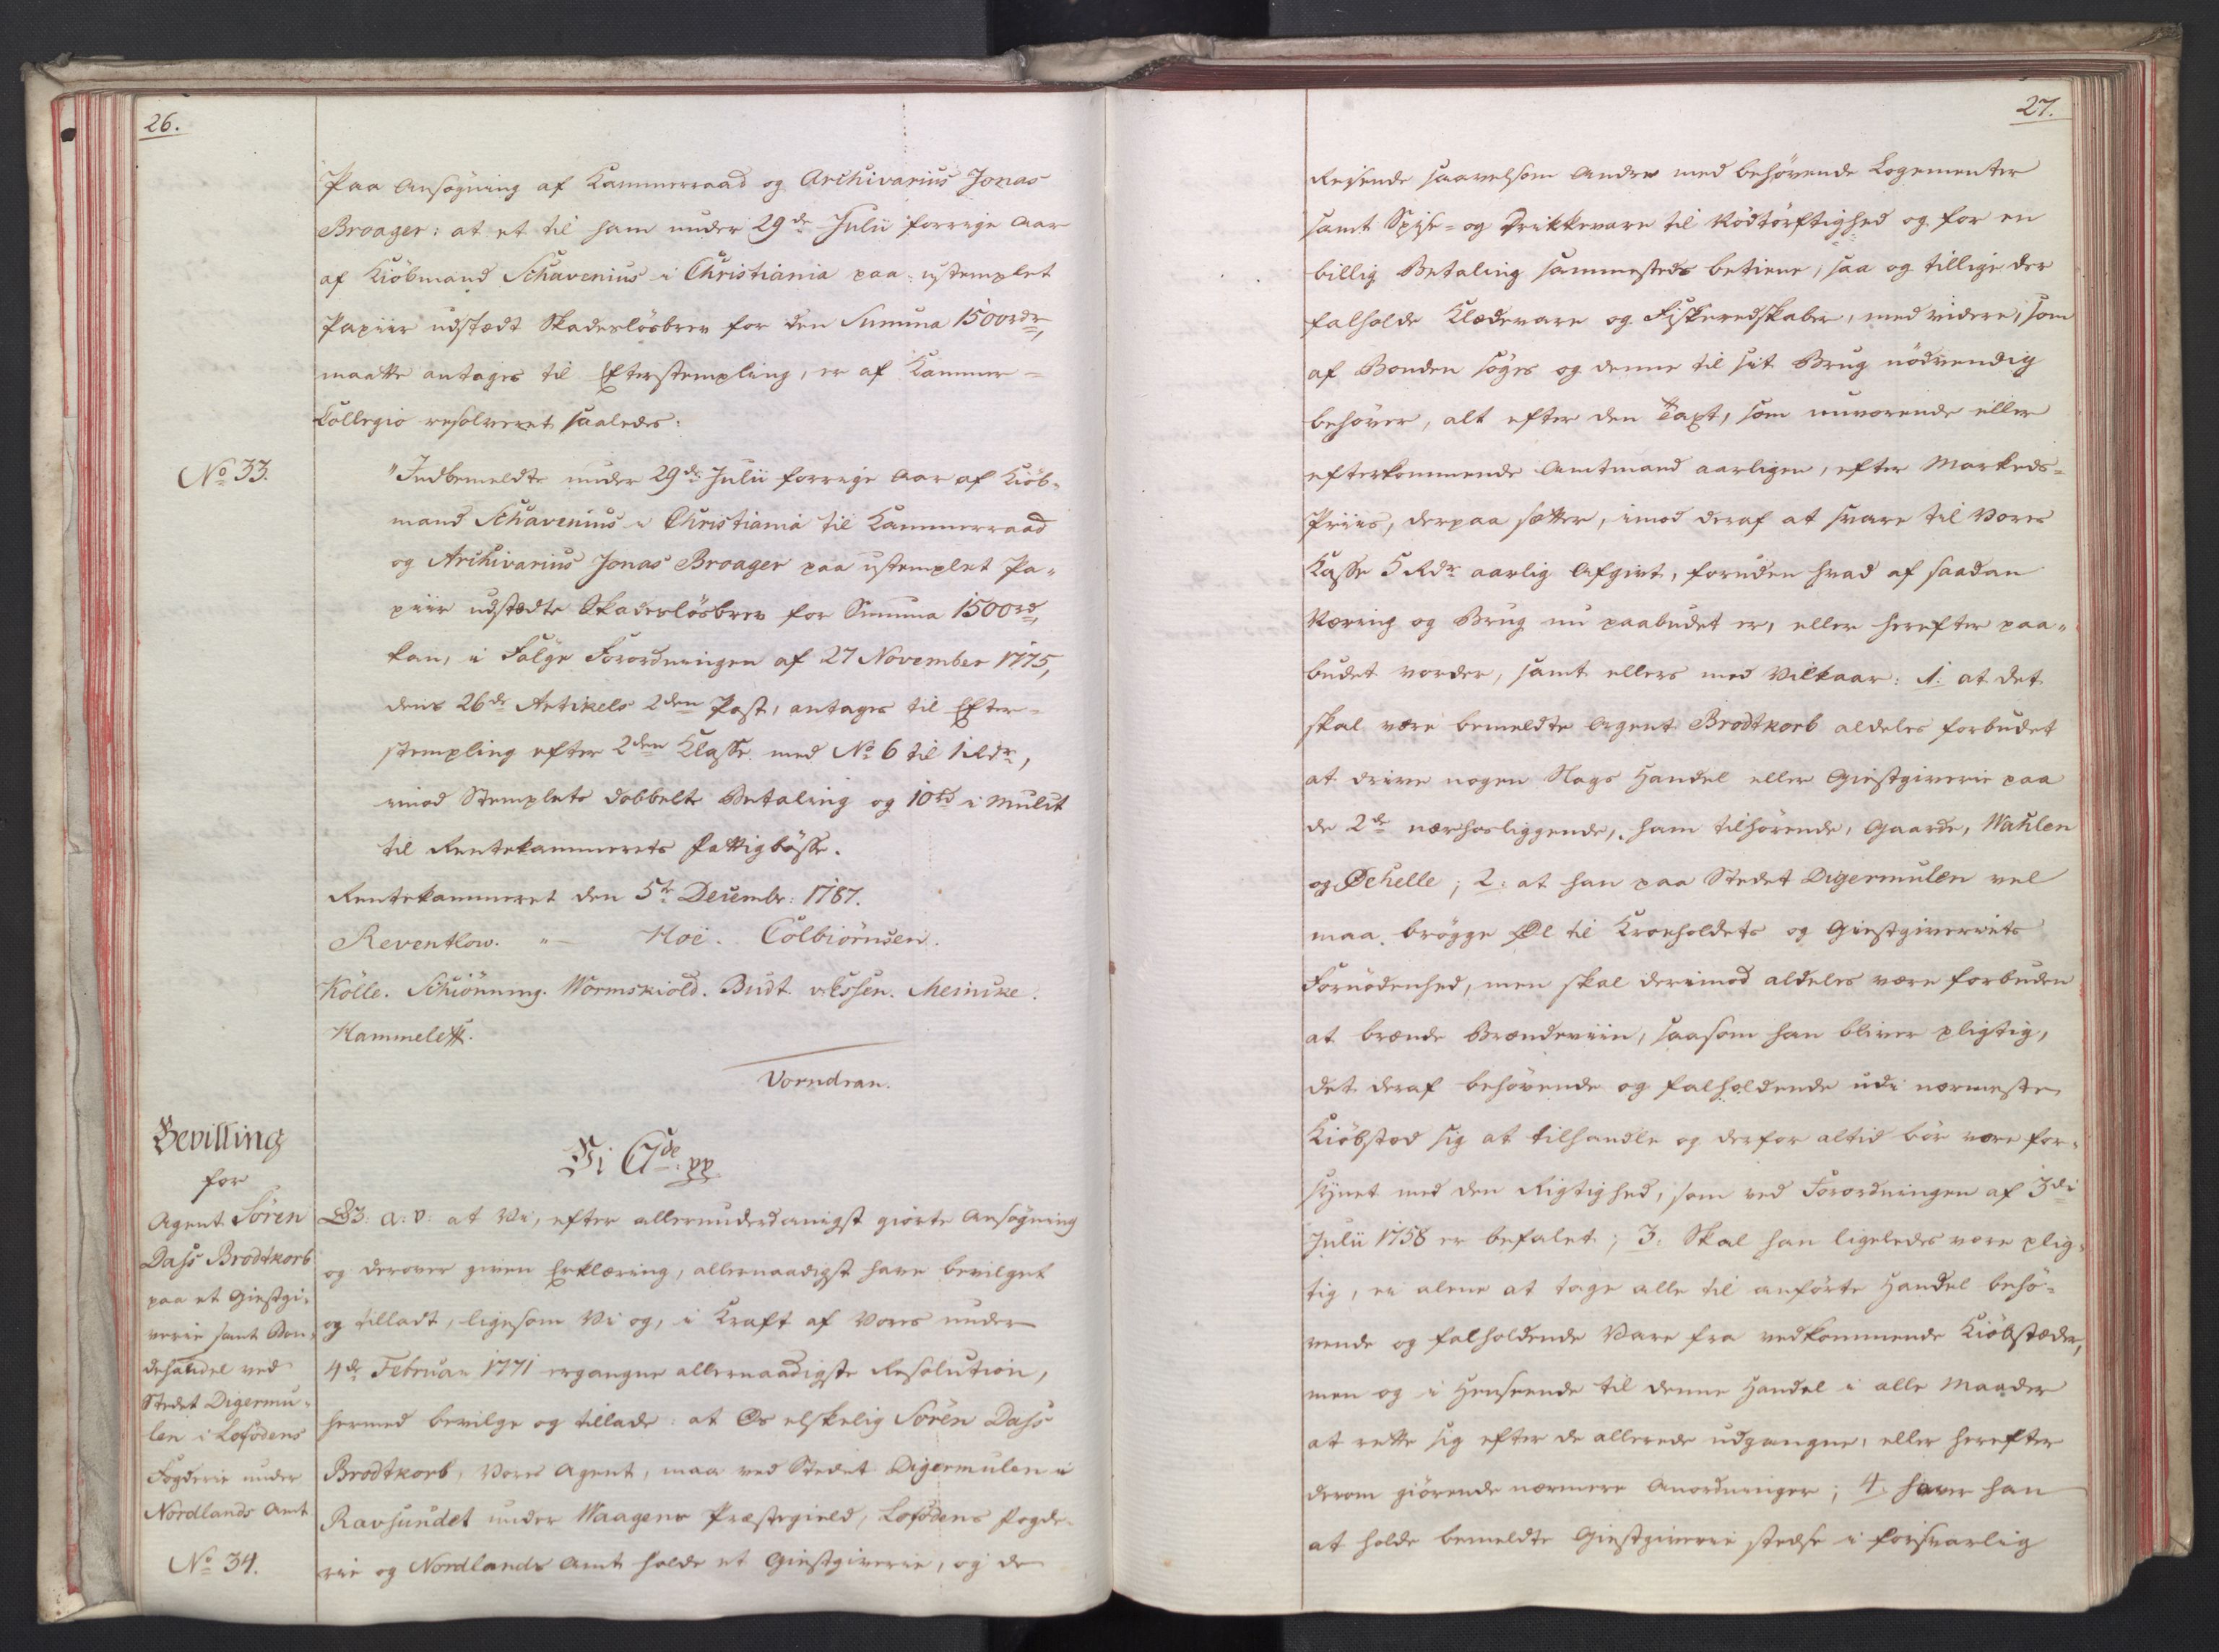 26.
Paa Ansøgning af Kammerraad og Archivarius Jonas
Broager: at et til ham under 29de Julii forrige Aar
af Kiöbmand Schavenius i Christiania paa ustemplet
Papiir udstædt Skadeslösbrev for den Summa 1500rdr,
maatte antages til Efterstempling, er af Kammer-
Collegio resolveret saaledes:
No 33.
"Indbemeldte under 29de Julii forrige Aar af Kiöb-
mand Schavenius i Christiania til Kammerraad
og Archivarius Jonas Broager paa ustemplet Pa-
piir udstædte Skadeslösbrev for Summa 1500rd,
kan, i Fölge Forordningen af 27 November 1775,
dens 26de Artikels 2den Post, antages til Efter-
stempling efter 2den Klasse med No 6 til 1 Rdr,
imod Stemplets dobbelte Betaling og 10rd i Mulct
til Rentekammerets Fattigbösse.
Rentekammeret den 5te Decembr: 1787.
Reventlow. " Hoë. Colbiörnsen.
Kölle. Schiönning. Wormskiold. Budt. v. Essen. Meincke.
Hammeleff.
Vorndran.
Bevilling
for
Agent Sören
Dass Brodtkorb
paa et Giestgi-
verie samt Bon-
dehandel ved
Stedet Digermu-
len i Lofodens
Fogderie under
Nordlands Amt
No 34.
Vi C7de. pp.
G: A: V: at Vi, efter allerunderdanigst giorte Ansøgning
og derover given Erklæring, allernaadigst have bevilget
og tilladt, ligesom Vi og, i Kraft af Vores under
4de Februar 1771 ergangne allernaadigste Resolution,
hermed bevilge og tillade: at Os elskelig Sören Dass
Brodtkorb, Vores Agent, maa ved Stedet Digermulen i
Ravsundet under Waagens Præstegield, Lofodens Fogde-
rie og Nordlands Amt holde et Giestgiverie, og de
27.
Reisende saavelsom Andre med behøvende Logementer
samt Spise- og Drikkevare til Nödtörftighed og for en
billig Betaling sammesteds betiene, saa og tillige der
falholde Klædevare og Fiskeredskaber, med videre, som
af Bonden söges og denne til sit Brug nödvendig
behøver, alt efter den Taxt, som nuværende eller
efterkommende Amtmand aarligen, efter Markeds-
Priis, derpaa sætter, imod deraf at svare til Vores
Kasse 5 Rdr aarlig Afgivt, foruden hvad af saadan
Næring og Brug nu paabudet er, eller herefter paa-
budet vorder, samt ellers med Vilkaar: 1. at det
skal være bemeldte Agent Brodtkorb aldeles forbudet
at drive nogen Slags Handel eller Giestgiverie paa
de 2de nærhosliggende, ham tilhörende, Gaarde, Wahlen
og Øehelle; 2: at han paa Stedet Digermulen vel
maa brögge Øl til Kroeholdets og Giestgiveriets
Fornödenhed, men skal derimod aldeles være forbuden
at brænde Brændeviin, saasom han bliver pligtig,
det deraf behøvende og falholdende udi nærmeste
Kiöbstæd sig at tilhandle og derfor altid bör være for-
synet med den Rigtighed, som ved Forordningen af 3die
Julii 1758 er befalet; 3: Skal han ligeledes være plig-
tig, ei alene at tage alle til anförte Handel behö-
vende og falholdende Vare fra vedkommende Kiöbstæder,
men og i Henseende til denne Handel i alle Maader
at rette sig efter de allerede udgangne, eller herefter
derom giörende nærmere Anordninger; 4. haver han
at holde bemeldte Giestgiverie stedse i forsvarlig